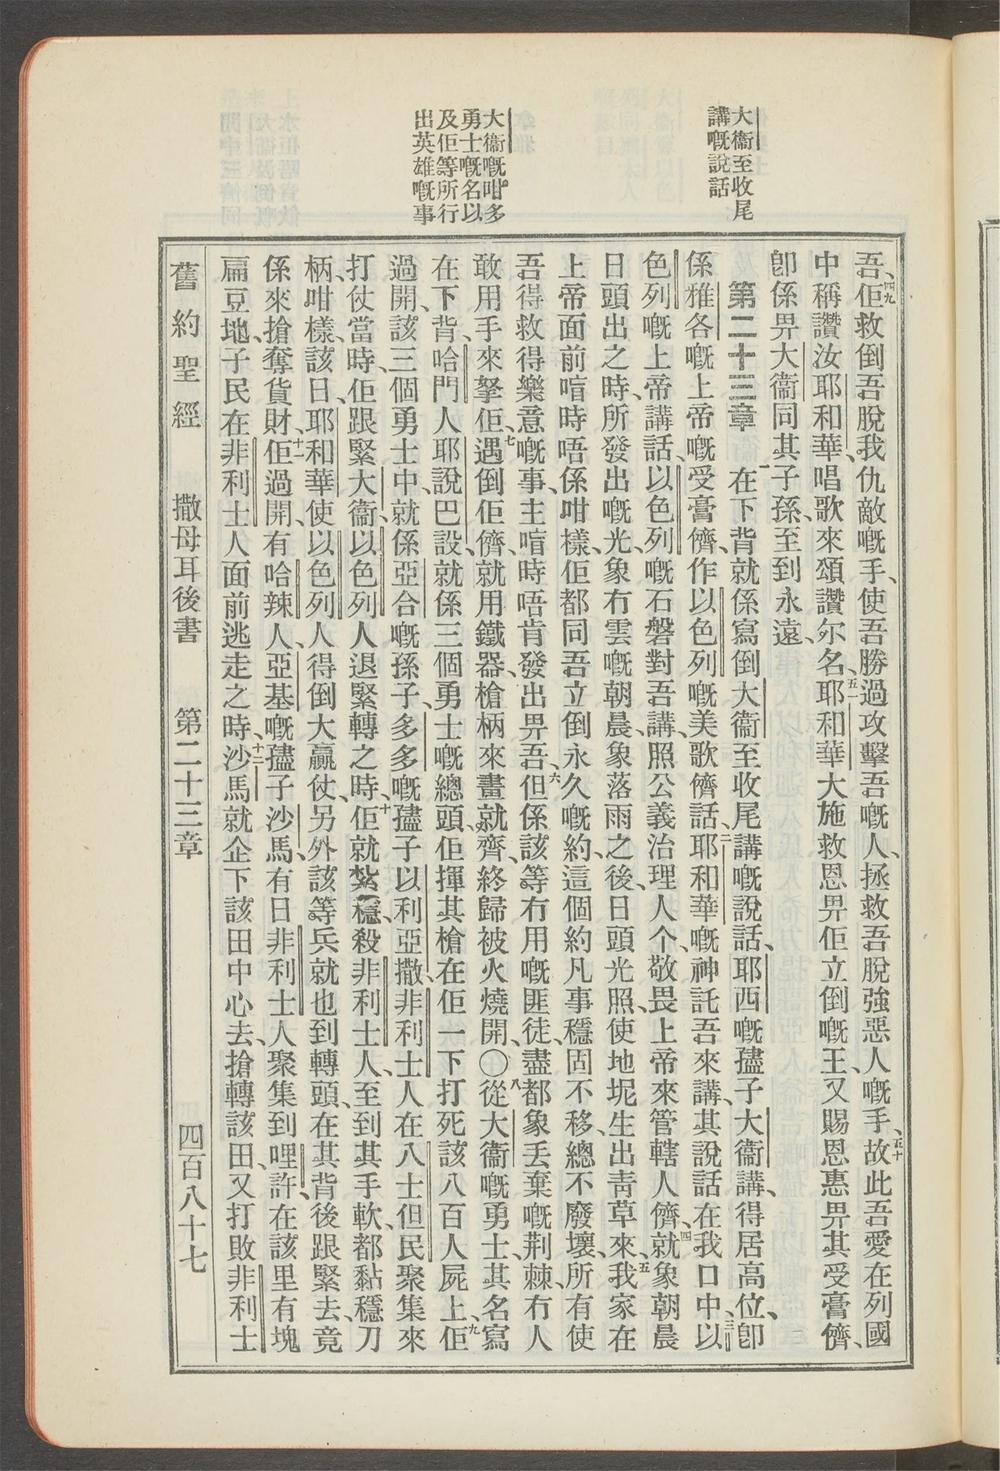 大衞至收尾
講嘅說話
大衞嘅咁多
勇士嘅名以
及佢等所行
出英雄嘅事
吾、四九佢救倒吾脫我仇敵嘅手、使吾勝過攻擊吾嘅人、拯救吾脫強惡人嘅手、五十故此吾愛在列國
中稱讚汝耶和華、唱歌來頌讚尔名、五一耶和華大施救恩畀佢立倒嘅王、又賜恩惠畀其受膏儕、
卽係畀大衞同其子孫、至到永遠、
第二十三章 一在下背就係寫倒大衞至收尾講嘅說話、耶西嘅孻子大衞講、得居高位、卽
係雅各嘅上帝嘅受膏儕、作以色列嘅美歌儕話、二耶和華嘅神託吾來講、其說話在我口中、三以
色列嘅上帝講話、以色列嘅石磐對吾講、照公義治理人个、敬畏上帝來管轄人儕、四就象朝晨
日頭出之時、所發出嘅光、象冇雲嘅朝晨、象落雨之後、日頭光照、使地坭生出靑草來、五我家在
上帝面前喑時唔係咁樣、佢都同吾立倒永久嘅約、這個約凡事穩固不移、總不廢壞、所有使
吾得救得樂意嘅事、主喑時唔肯發出畀吾、六但係該等冇用嘅匪徒、盡都象丢棄嘅荆棘、冇人
敢用手來拏佢、七遇倒佢儕、就用鐵器、槍柄來畫就齊、終歸被火燒開、〇八從大衞嘅勇士、其名寫
在下背、哈門人耶說巴設、就係三個勇士嘅總頭、佢揮其槍在佢一下打死該八百人屍上、九佢
過開、該三個勇士中、就係亞合嘅孫子、多多嘅孻子以利亞撒、非利士人在八士但民聚集來
打仗當時、佢跟緊大衞、以色列人退緊轉之時、十佢就紮穩殺非利士人、至到其手軟、都黏穩刀
柄、咁樣、該日、耶和華使以色列人得倒大贏仗、另外該等兵就也到轉頭、在其背後跟緊去、竟
係來搶奪貨財、十一佢過開、有哈辣人、亞基嘅孻子沙馬、有日非利士人聚集到哩許、在該里有塊
扁豆地、子民在非利士人面前逃走之時、十二沙馬就企下該田中心去、搶轉該田、又打敗非利士
舊約聖經 撒母耳後書 第二十三章 四百八十七